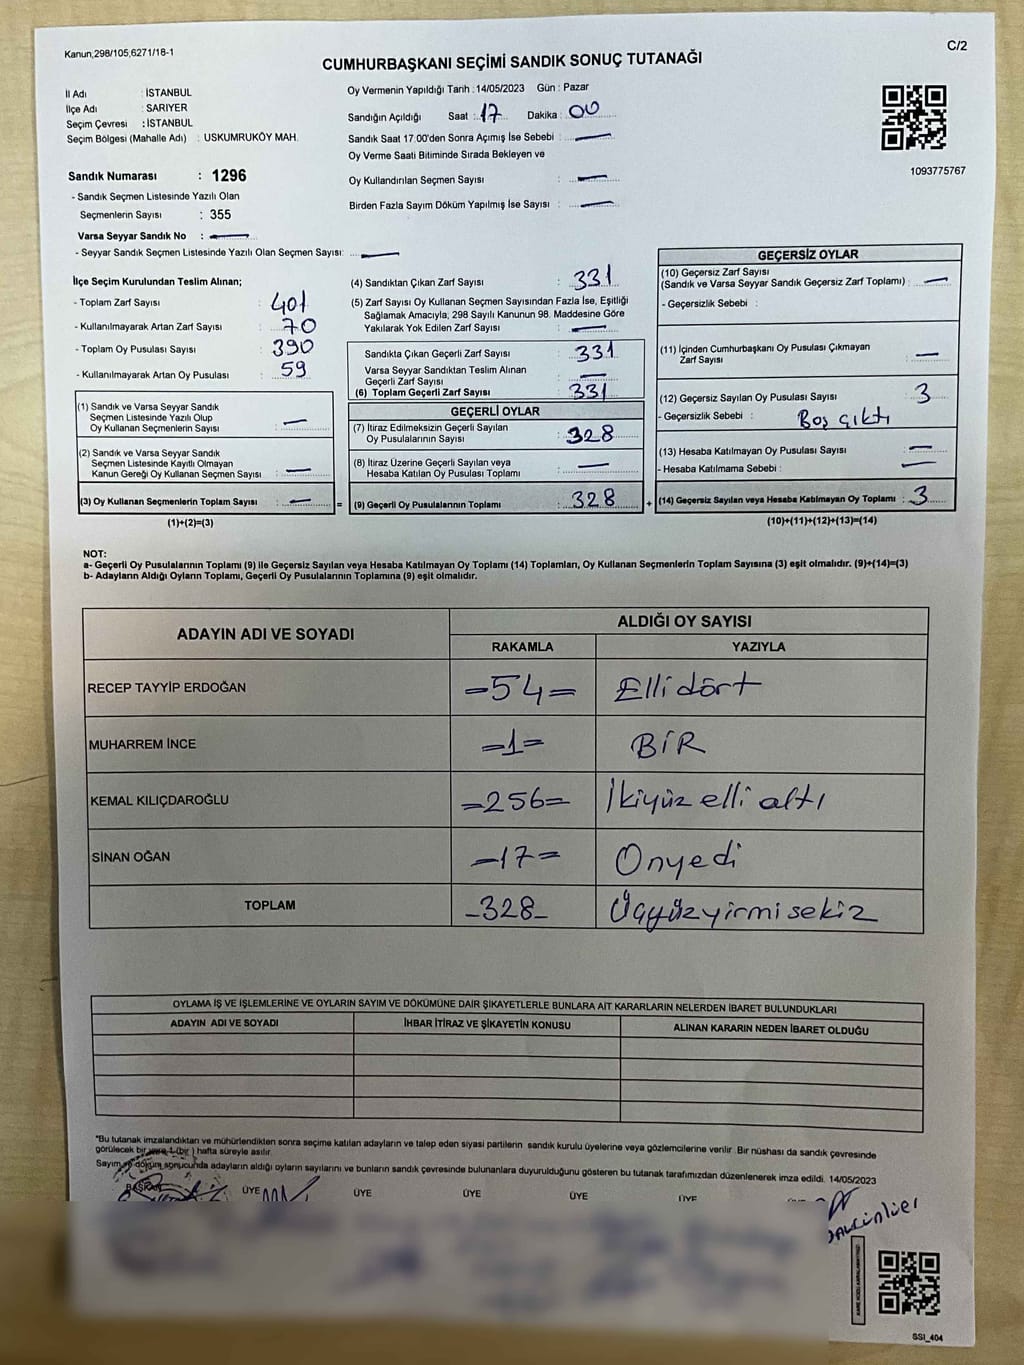 Kanun,298/105,6271/18-1
C/2
CUMHURBAŞKANI SEÇİMİ SANDIK SONUÇ TUTANAĞI
İl Adı : İSTANBUL
İlçe Adı : SARIYER
Seçim Çevresi : İSTANBUL
Seçim Bölgesi (Mahalle Adı) : USKUMRUKÖY MAH.
Sandık Numarası : 1296
- Sandık Seçmen Listesinde Yazılı Olan
Seçmenlerin Sayısı : 355
Varsa Seyyar Sandık No : —
- Seyyar Sandık Seçmen Listesinde Yazılı Olan Seçmen Sayısı: —
Oy Vermenin Yapıldığı Tarih : 14/05/2023 Gün : Pazar
Sandığın Açıldığı Saat : 17 Dakika : 00
Sandık Saat 17.00'den Sonra Açımış İse Sebebi : —
Oy Verme Saati Bitiminde Sırada Bekleyen ve
Oy Kullandırılan Seçmen Sayısı : —
Birden Fazla Sayım Döküm Yapılmış İse Sayısı : —
1093775767
İlçe Seçim Kurulundan Teslim Alınan;
- Toplam Zarf Sayısı : 401
- Kullanılmayarak Artan Zarf Sayısı : 70
- Toplam Oy Pusulası Sayısı : 390
- Kullanılmayarak Artan Oy Pusulası : 59
(1) Sandık ve Varsa Seyyar Sandık
Seçmen Listesinde Yazılı Olup
Oy Kullanan Seçmenlerin Sayısı : —
(2) Sandık ve Varsa Seyyar Sandık
Seçmen Listesinde Kayıtlı Olmayan
Kanun Gereği Oy Kullanan Seçmen Sayısı : —
(3) Oy Kullanan Seçmenlerin Toplam Sayısı : — =
(1)+(2)=(3)
(4) Sandıktan Çıkan Zarf Sayısı : 331
(5) Zarf Sayısı Oy Kullanan Seçmen Sayısından Fazla İse, Eşitliği
Sağlamak Amacıyla, 298 Sayılı Kanunun 98. Maddesine Göre
Yakılarak Yok Edilen Zarf Sayısı : —
Sandıkta Çıkan Geçerli Zarf Sayısı : 331
Varsa Seyyar Sandıktan Teslim Alınan
Geçerli Zarf Sayısı : —
(6) Toplam Geçerli Zarf Sayısı : 331
GEÇERLİ OYLAR
(7) İtiraz Edilmeksizin Geçerli Sayılan
Oy Pusulalarının Sayısı : 328
(8) İtiraz Üzerine Geçerli Sayılan veya
Hesaba Katılan Oy Pusulası Toplamı : —
(9) Geçerli Oy Pusulalarının Toplamı : 328 +
GEÇERSİZ OYLAR
(10) Geçersiz Zarf Sayısı
(Sandık ve Varsa Seyyar Sandık Geçersiz Zarf Toplamı) : —
- Geçersizlik Sebebi :
(11) İçinden Cumhurbaşkanı Oy Pusulası Çıkmayan
Zarf Sayısı : —
(12) Geçersiz Sayılan Oy Pusulası Sayısı : 3
- Geçersizlik Sebebi : Boş çıktı
(13) Hesaba Katılmayan Oy Pusulası Sayısı : —
- Hesaba Katılmama Sebebi : —
(14) Geçersiz Sayılan veya Hesaba Katılmayan Oy Toplamı : 3
(10)+(11)+(12)+(13)=(14)
NOT:
a- Geçerli Oy Pusulalarının Toplamı (9) ile Geçersiz Sayılan veya Hesaba Katılmayan Oy Toplamı (14) Toplamları, Oy Kullanan Seçmenlerin Toplam Sayısına (3) eşit olmalıdır. (9)+(14)=(3)
b- Adayların Aldığı Oyların Toplamı, Geçerli Oy Pusulalarının Toplamına (9) eşit olmalıdır.
ADAYIN ADI VE SOYADI
ALDIĞI OY SAYISI
RAKAMLA YAZIYLA
RECEP TAYYİP ERDOĞAN =54= Elli dört
MUHARREM İNCE =1= BİR
KEMAL KILIÇDAROĞLU =256= İkiyüz elli altı
SİNAN OĞAN =17= Onyedi
TOPLAM -328- Üçyüzyirmi sekiz
OYLAMA İŞ VE İŞLEMLERİNE VE OYLARIN SAYIM VE DÖKÜMÜNE DAİR ŞİKAYETLERLE BUNLARA AİT KARARLARIN NELERDEN İBARET BULUNDUKLARI
ADAYIN ADI VE SOYADI İHBAR İTİRAZ VE ŞİKAYETİN KONUSU ALINAN KARARIN NEDEN İBARET OLDUĞU
"Bu tutanak imzalandıktan ve mühürlendikten sonra seçime katılan adayların ve talep eden siyasi partilerin sandık kurulu üyelerine veya gözlemcilerine verilir. Bir nüshası da sandık çevresinde
görülecek bir yere 1 (bir ) hafta süreyle asılır.
Sayım ve döküm sonucunda adayların aldığı oyların sayılarını ve bunların sandık çevresinde bulunanlara duyurulduğunu gösteren bu tutanak tarafımızdan düzenlenerek imza edildi. 14/05/2023
BAŞKAN ÜYE ÜYE ÜYE ÜYE ÜYE
SSİ_404